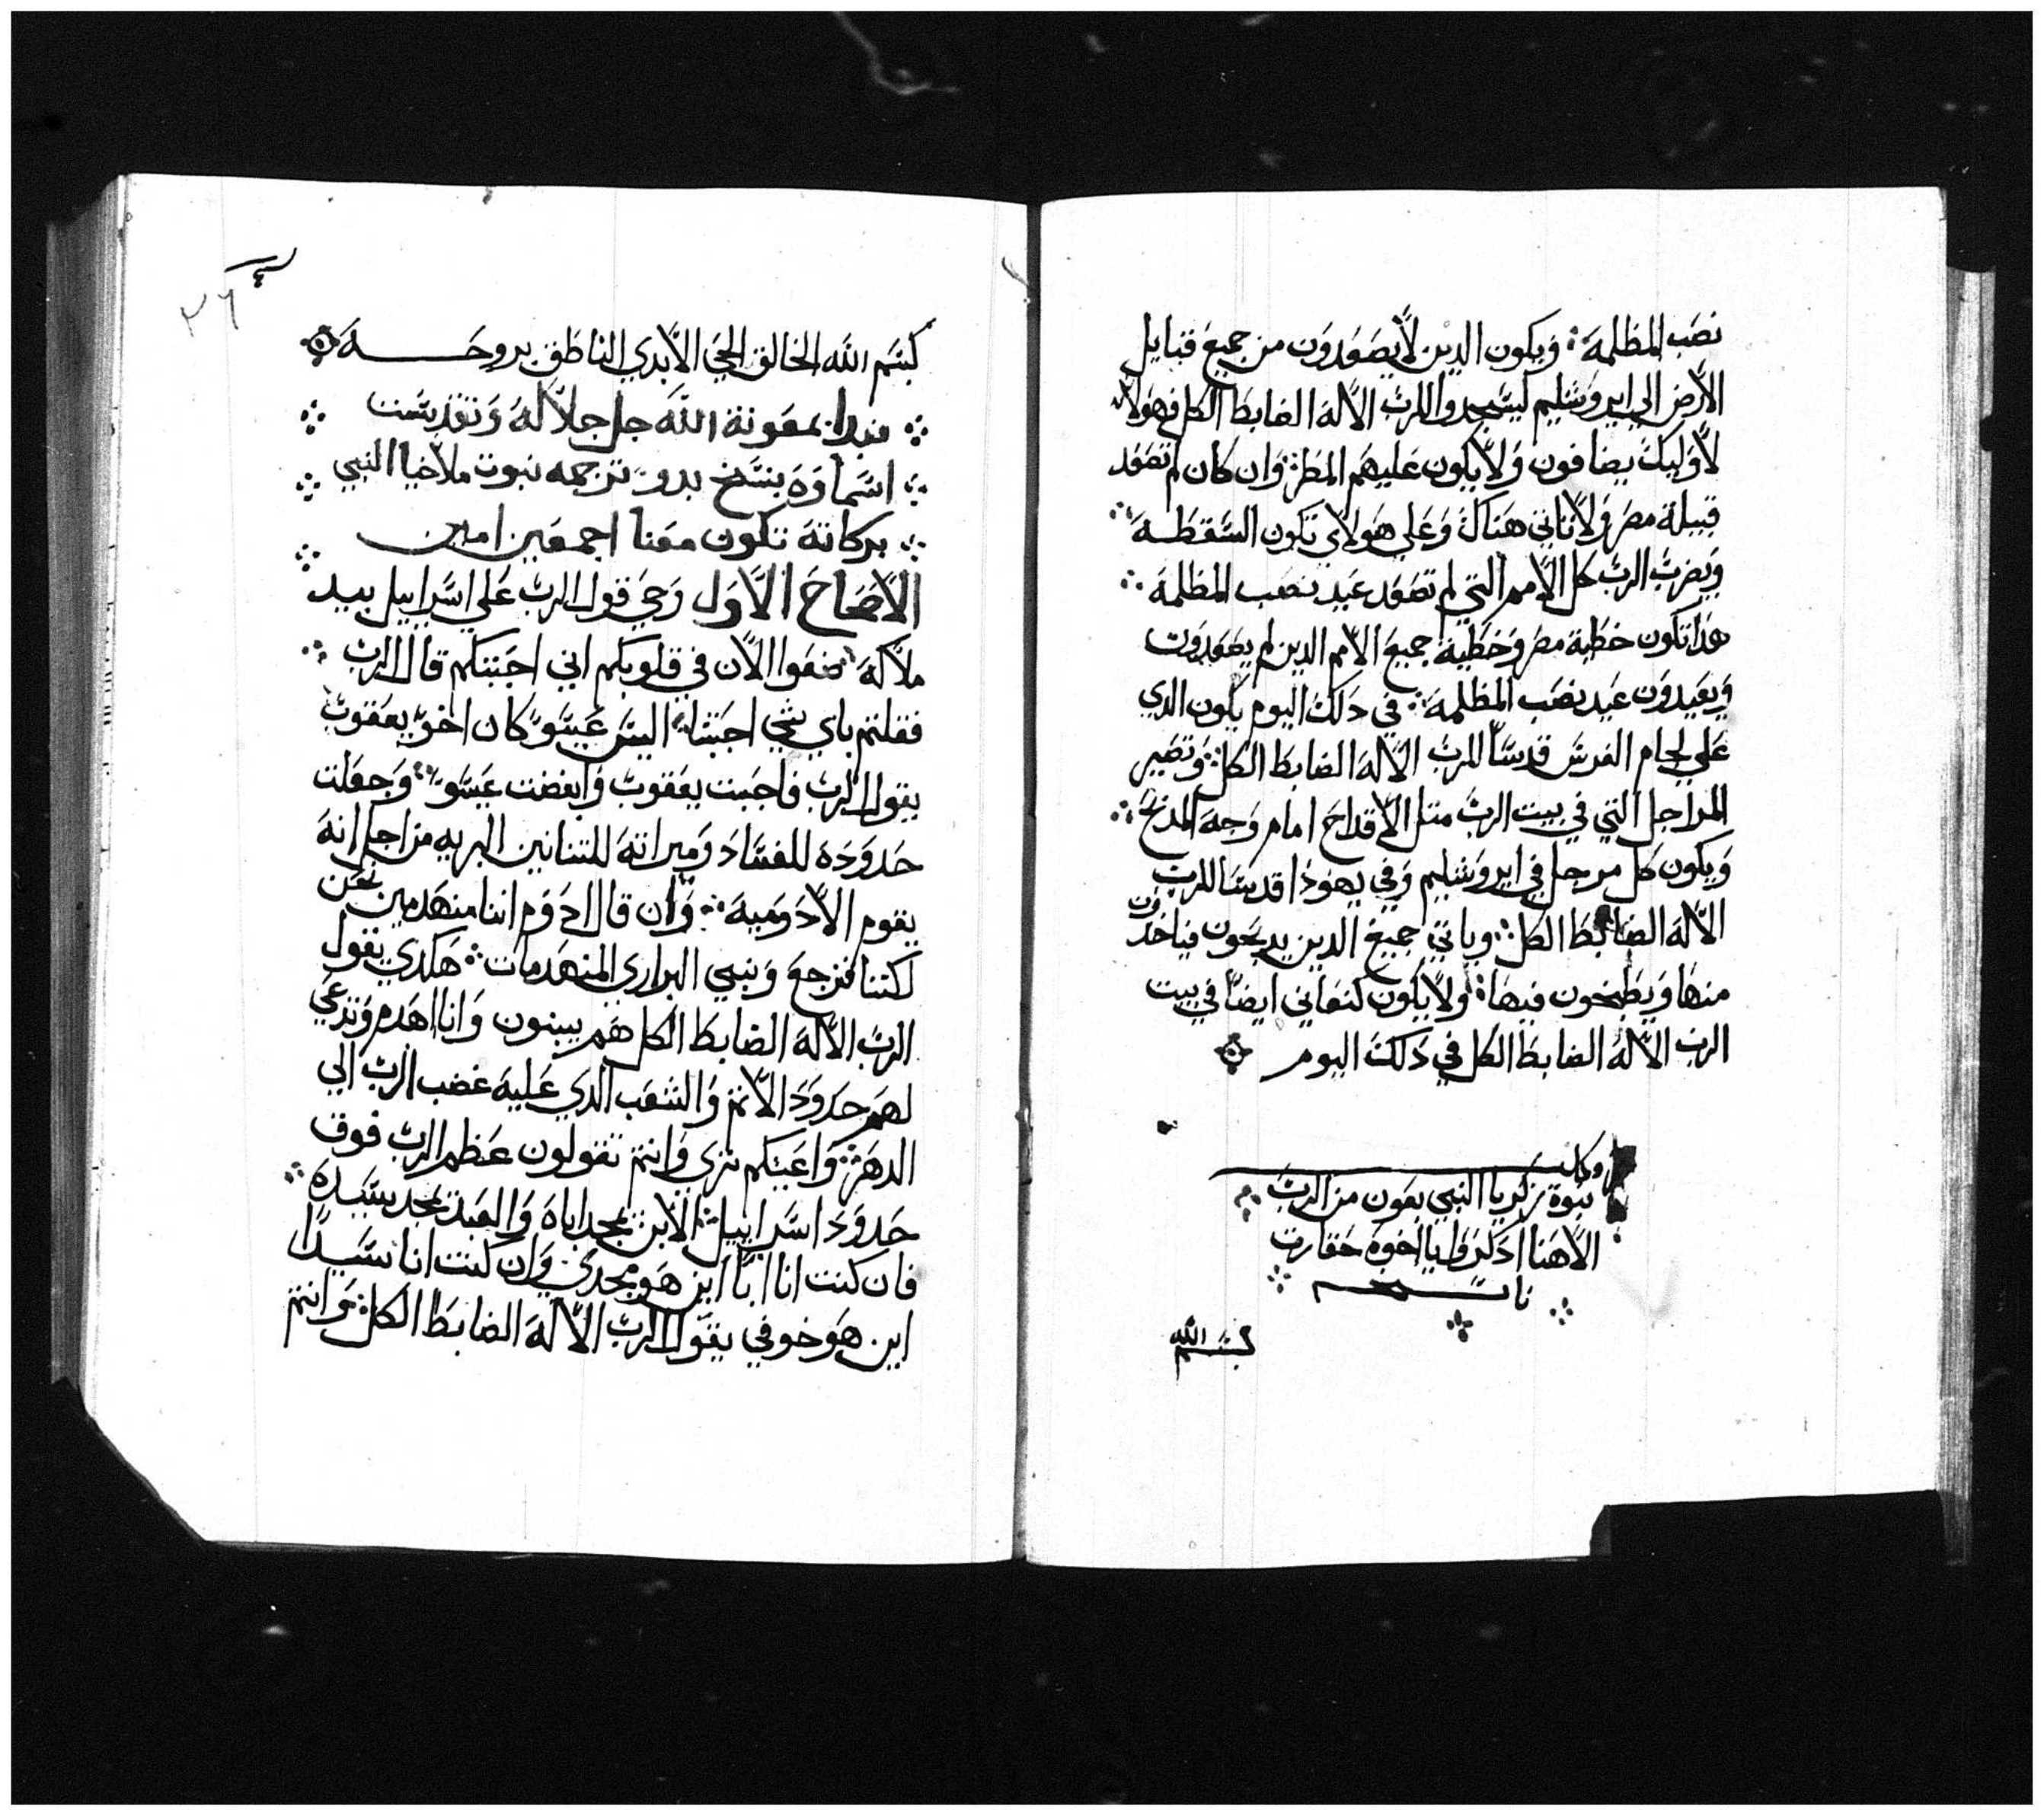 نصب المظلمة ويكون الدين لا يصعدون من جميع قبايل
الارض الي ايروشليم ليسجدوا للرب الاله الضابط الكل فهولاء
لاوليك يضافون ولا يكون عليهم المطر وان كان لم تصعد
قبيلة مصر ولا تاتي هناك وعلي هولاي تكون السقطة
ويضرب الرب كل الامم التي لم تصعد عيد نصب المظلمة
هدا تكون خطية مصر وخطية جميع الامم الدين لم يصعدون
ويعيدون عيد نصب المظلمة في دلك اليوم يكون الدي
علي لجام الفرس قدسا للرب الاله الضابط الكل وتصير
المراجل التي في بيت الرب متل الاقداح امام وجه المدبح
ويكون كل مرجل في ايروشليم وفي يهودا قدسا للرب
الاله الضابط الكل وياتي جميع الدين يدبحون فياخدون
منها ويطبخون فيها ولا يكون كنعاني ايضا في بيت
الرب الاله الضابط الكل في دلك اليوم
وكمل
نبوة زكريا النبي بعون من الرب
الاهنا ادكروا يا اخوه حقارت
بسم الله
٢٦
بسم الله الخالق الحي الابدي الناطق بروحه
نبدا بمعونة الله جل جلاله وتقدست
اسماوه بنسخ بدو ترجمه نبوت ملاخيا النبي
بركاته تكون معنا اجمعين امين
الاصحاح الاول وحي قول الرب علي اسراييل بيد
ملاكه ضعوا الان في قلوبكم اني احببتكم قال الرب
فقلتم باي شي احببتنا اليس عيسو كان اخو يعقوب
يقول الرب فاحببت يعقوب وابغضت عيسو وجعلت
حدوده للفساد وميراته للتنانين البريه من اجل انه
يقوم الادوميه وان قال ادوم اننا منهدمين نحن
لكننا فنرجع ونبني البراري المنهدمات هكدي يقول
الرب الاله الضابط الكل هم يبنون وانا اهدم وتدعي
لهم حدود الاتم والشعب الدي عليه غضب الرب الي
الدهر واعينكم تري وانتم تقولون عظم الرب فوق
حدود اسراييل الابن يمجد اباه والعبد يمجد سيده
فان كنت انا ابا اين هو مجدي وان كنت انا سيدا
اين هو خوفي يقول الرب الاله الضابط الكل وانتم